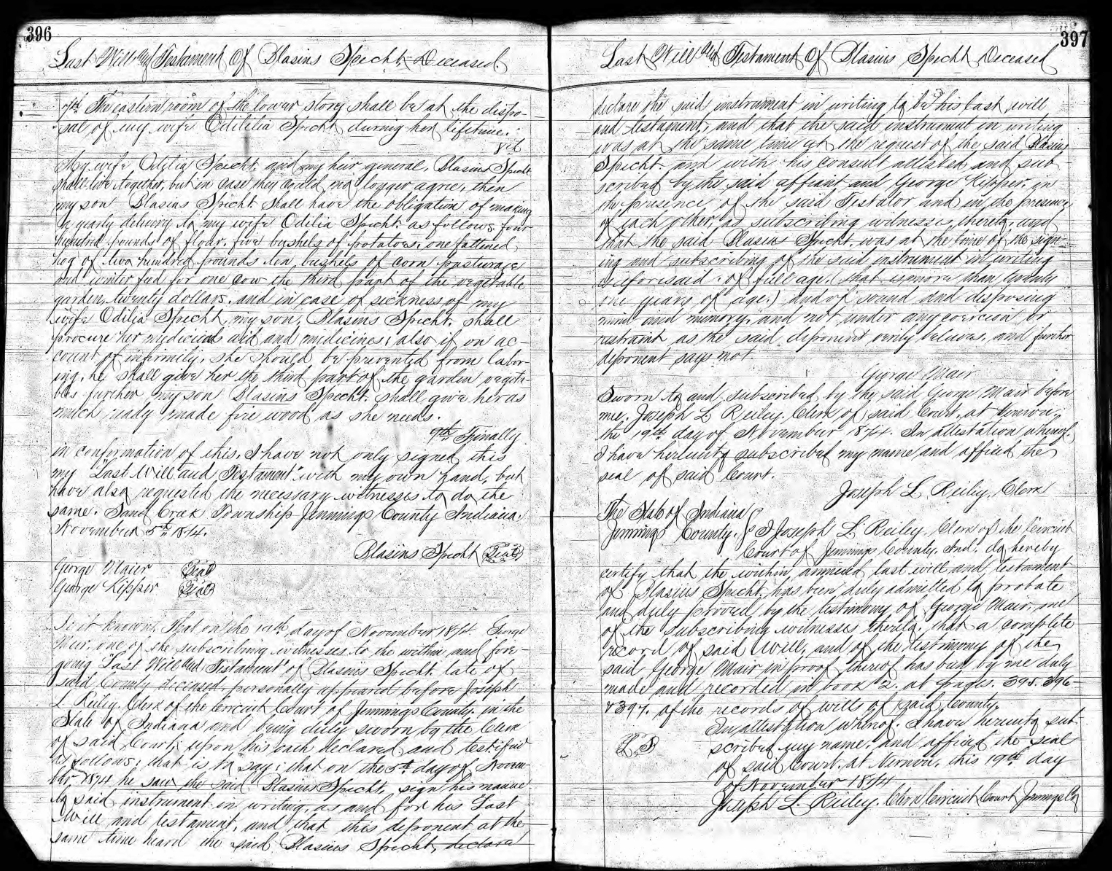 396
Last Will And Testament Of Blasius Specht Deceased
7th The eastern room of the lower story shall be at the dispo-
sal of my wife Odililia Specht during her lifetime.
8th
My wife Odilia Specht and my heir general, Blasius Specht
shall live together, but in case they could no longer agree, then
my son Blasius Specht shall have the obligation of making
a yearly delivery to my wife Odilia Specht as follows, four
hundred pounds of flour, five bushels of potatoes, one fattened
hog of two hundred pounds ten bushels of corn, pasturage
and winter fed for one cow the third part of the vegetable
garden, twenty dollars, and in case of sickness of my
wife Odilia Specht, my son, Blasius Specht, shall
procure her medicinal aid and medicines; also if on ac-
count of infirmity, she should be prevented from labor-
ing, he shall give her the third part of the garden vegeta-
bles further my son Blasius Specht shall give her as
much ready made fire wood as she needs.
9th Finally
in conformation of this, I have not only signed this
my "Last Will and Testament" with my own hand, but
have also requested the necessary witnesses to do the
same. Sand Creek Township Jennings County Indiana.
November 5th 1874.
Blasius Specht (Seal)
George Maier (Seal)
George Kipper (Seal)
Be it known, That on the 19th day of November 1874. George
Mair, one of the subscribing witnesses to the within, and fore-
going "Last Will and Testament" of Blasius Specht late of
said County deceased, personally appeared before Joseph
L Reiley Clerk of the Circuit Court of Jennings County, in the
State of Indiana and being duly sworn by the Clerk
of said Court, upon his oath declared and testified
as follows; that is to say; that on the 5th day of Novem-
ber 1874 he saw the said Blasius Specht, sign his name
to said instrument in writing, as and for his Last
Will and testament, and that this deponent at the
same time heard the said Blasius Specht, declare
397
Last Will And Testament Of Blasius Specht Deceased
declare the said instrument in writing to be his last will
and testament, and that the said instrument in writing
was at the same time at the request of the said Blasius
Specht, and with his consent attested and sub
scribed by the said affiant and George Kipper, in
the presence, of the said Testator and in the presence
of each other, as subscribing witnesses thereto, and
that the said Blasius Specht, was at the time of the sign-
ing and subscribing of the said instrument in writing
as aforesaid, of full age (that is more than twenty
one years of age,) and of sound and disposing
mind and memory, and not under any coercion or
restraint as the said deponent verily believes, and further
deponent says not
George Mair
Sworn to and subscribed by the said George Mair before
me, Joseph L Reiley Clerk of said Court, at Vernon,
the 19th day of November 1874. In attestation whereof
I have hereunto subscribed my name and affixed the
seal of said Court.
Joseph L Reiley, Clerk
The State of Indiana
Jennings County. I Joseph L Reiley Clerk of the Circuit
Court of Jennings County. Ind. do hereby
certify that the within, annexed last will and testament
of Blasius Specht, has been duly admitted to probate
and duly proved by the testimony of George Mair, one
of the subscribing witnesses thereto, that a complete
record of said Will, and of the testimony of the
said George Mair in proof thereof has been by me duly
made and recorded in book 2. at pages 395. 396
& 397. of the records of wills of said County.
In attestation whereof I have hereunto sub-
scribed my name, and affixed the seal
of said Court. at Vernon, this 19th day
of November 1874
L. S.
Joseph L Reiley. Clerk Circuit Court Jennings Co